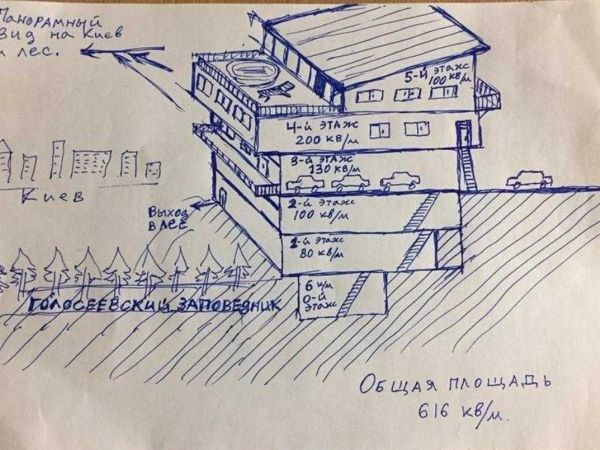 Панорамный
вид на Киев
и лес.
5-й этаж
100 кв/м
4-й этаж
200 кв/м
3-й этаж
130 кв/м
Киев
2-й этаж
100 кв/м
Выход
в лес
1-й этаж
80 кв/м
6 к/м
0-й
этаж
ГОЛОСЕЕВСКИЙ ЗАПОВЕДНИК
Общая площадь
616 кв/м.